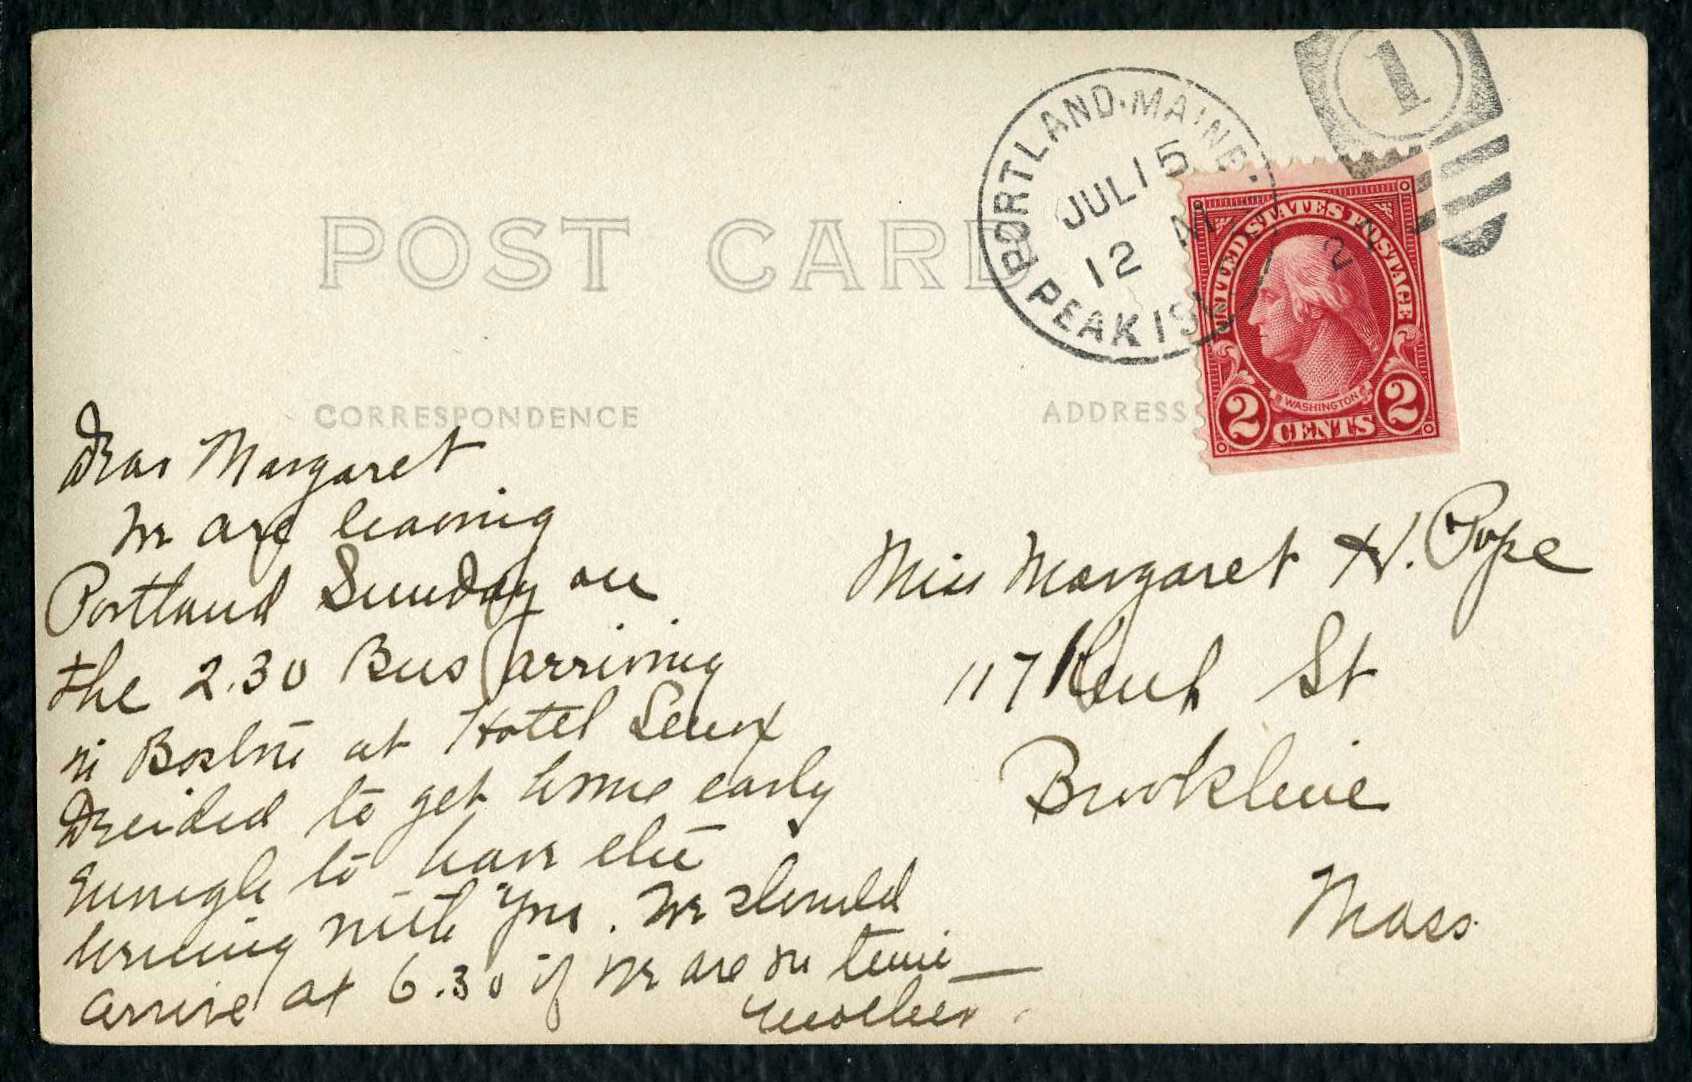 POST CARD
PORTLAND. MAINE.
JUL 15
12 M
PEAK ISL
1
UNITED STATES POSTAGE
WASHINGTON
2 CENTS 2
CORRESPONDENCE
ADDRESS
Dear Margaret
We are leaving
Portland Sunday on
the 2.30 Bus arriving
in Boston at Hotel Lenox
Decided to get home early
enough to have the
evening with you. We should
arrive at 6.30 if we are on time —
Mother.
Miss Margaret H. Pope
117 St
Brookline
Mass.